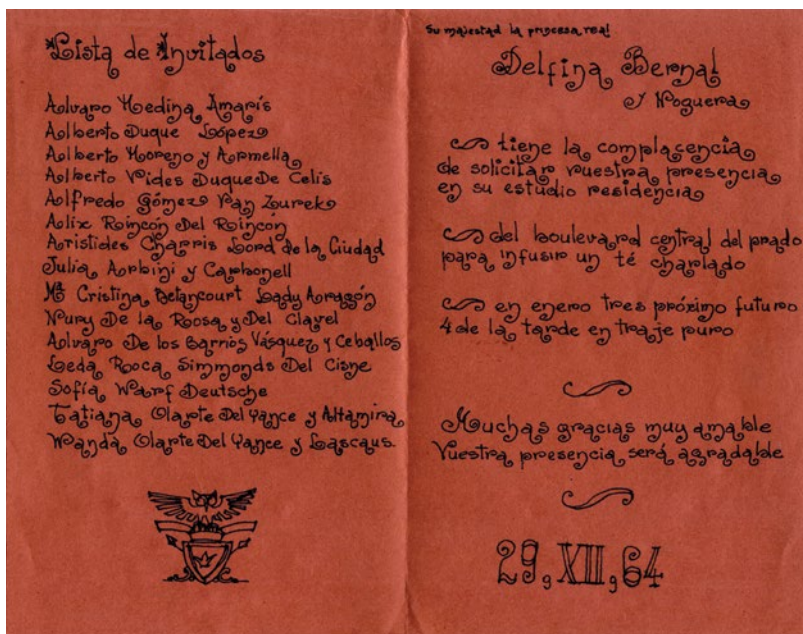 Lista de Invitados
Alvaro Medina Amarís
Alberto Duque López
Alberto Moreno y Armella
Alberto Vides Duque De Celis
Alfredo Gómez Van Zurek
Alix Rincón Del Rincón
Aristides Charris Lord de la Ciudad
Julia Arbini y Carbonell
Mª Cristina Betancourt Lady Aragón
Nury De la Rosa y Del Clavel
Alvaro De los Barrios Vásquez y Ceballos
Leda Roca Simmonds Del Cisne
Sofía Warf Deutsche
Tatiana Olarte Del Yance y Altamira
Wanda Olarte Del Yance y Lascaus
Su majestad la princesa real
Delfina Bernal
y Noguera
tiene la complacencia
de solicitar vuestra presencia
en su estudio residencia
del boulevard central del prado
para infusir un té charlado
en enero tres próximo futuro
4 de la tarde en traje puro
Muchas gracias muy amable
Vuestra presencia será agradable
29, XII, 64